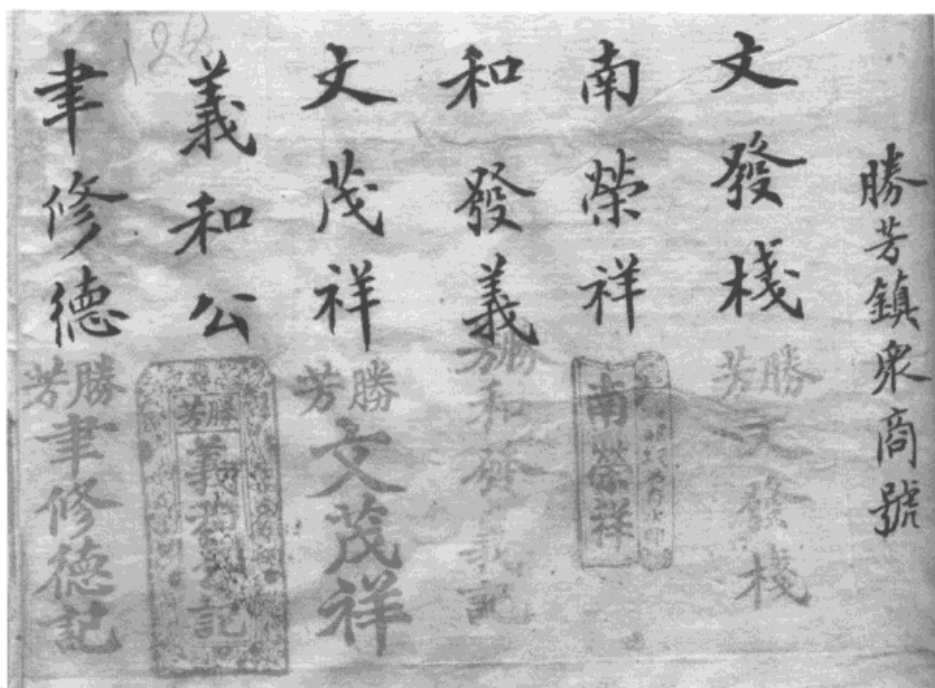 勝芳鎮衆商號
文發棧
勝芳
文發棧
南榮祥
南榮祥
和發義
勝芳
和發義記
文茂祥
勝芳
文茂祥
義和公
勝芳
義和公記
聿修德
勝芳
聿修德記